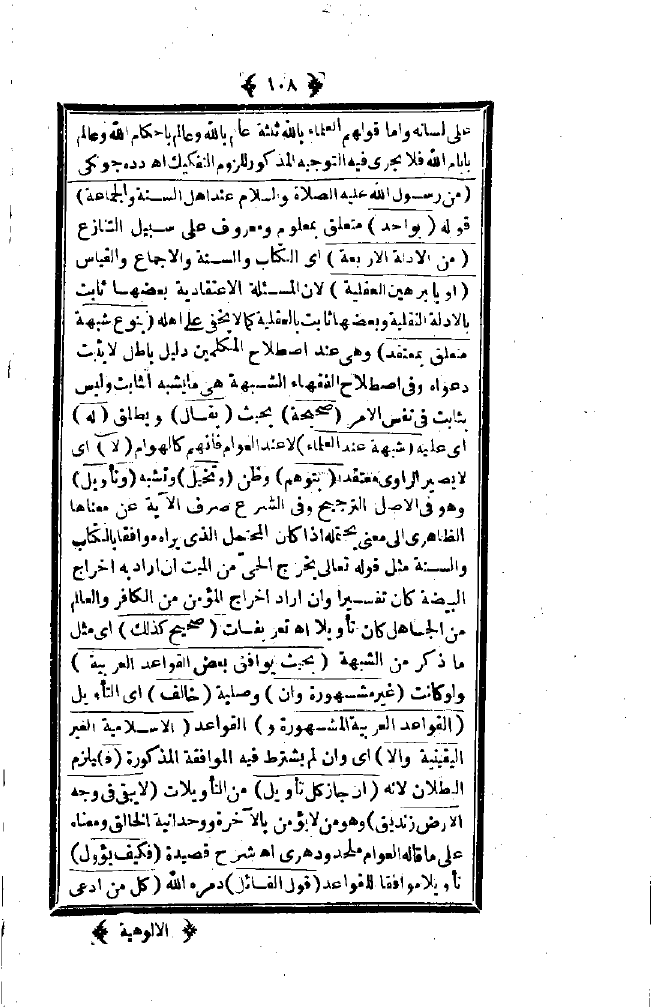 ﴿ ١٠٨ ﴾
على لسانه واما قولهم العلماء بالله ثلثة عالم بالله وعالم باحكام الله وعالم
بايام الله فلا يجرى فيه التوجيه المذكور للزوم التفكيك اه دده جونكى
(من رسول الله عليه الصلاة والسلام عند اهل السنة والجماعة)
قوله (بواحد) متعلق بمعلوم ومعروف على سبيل التنازع
(من الادلة الاربعة) اى الكتاب والسنة والاجماع والقياس
(او بابرهين العقلية) لان المسئلة الاعتقادية بعضها ثابت
بالادلة النقلية وبعضها ثابت بالعقلية كما لا يخفى على اهله (بنوع شبهة
متعلق بمعتقد) وهى عند اصطلاح المتكلمين دليل باطل لا يثبت
دعواه وفى اصطلاح الفقهاء الشبهة هى مايشبه الثابت وليس
بثابت فى نفس الامر (صحيحة) بحيث (يقال) ويطلق (له)
اى عليه (شبهة عند العلماء) لا عند العوام فانهم كالهوام (لا) اى
لا يصير الراوى معتقدا (بتوهم) وظن (وتخيل) وتشبه (وتأويل)
وهو فى الاصل الترجيح وفى الشرع صرف الآية عن معناها
الظاهرى الى معنى يحتمله اذا كان المحتمل الذى يراه موافقا بالكتاب
والسنة مثل قوله تعالى يخرج الحى من الميت ان اراد به اخراج
البيضة كان تفسيرا وان اراد اخراج المؤمن من الكافر والعالم
من الجاهل كان تأويلا اه تعريفات (صحيح كذلك) اى مثل
ما ذكر من الشبهة (بحيث يوافق بعض القواعد العربية)
ولو كانت (غير مشهورة وان) وصلية (خالف) اى التأويل
(القواعد العربية المشهورة و) القواعد (الاسلامية الغير
اليقينية والا) اى وان لم يشترط فيه الموافقة المذكورة (ف) يلزم
البطلان لانه (ان جاز كل تأويل) من التأويلات (لا يبقى فى وجه
الارض زنديق) وهو من لا يؤمن بالآخرة ووحدانية الخالق ومعناه
على ما قاله العوام ملحد ودهرى اه شرح قصيدة (فكيف يؤول)
تأويلا موافقا للقواعد (قول القائل) دمره الله (كل من ادعى
﴿ الالوهية ﴾